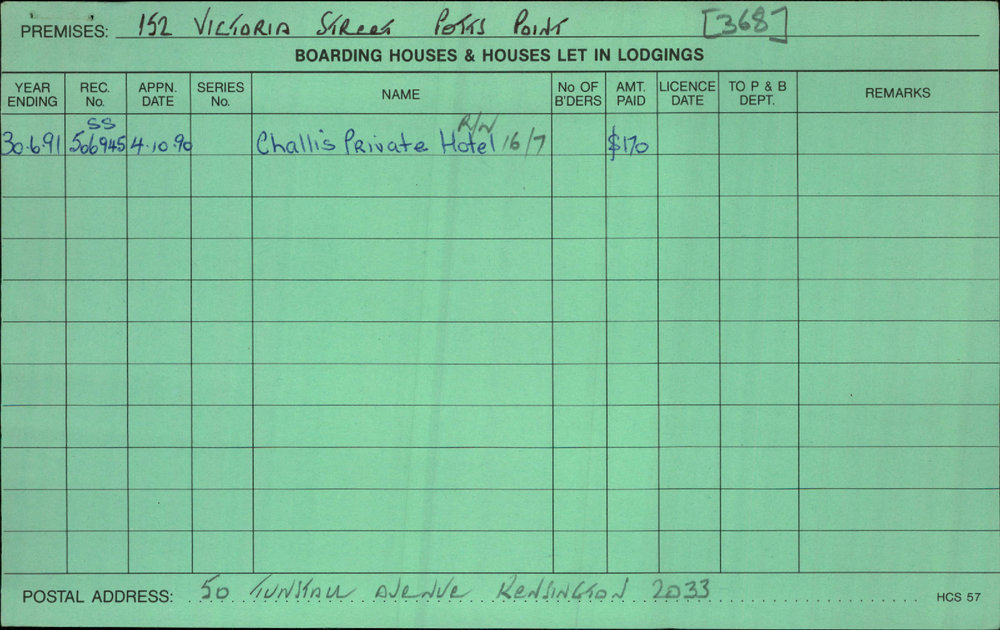 PREMISES: 152 VICTORIA STREET POTTS POINT [368]
BOARDING HOUSES & HOUSES LET IN LODGINGS
YEAR ENDING REC. No. APPN. DATE SERIES No. NAME No OF B'DERS AMT. PAID LICENCE DATE TO P & B DEPT. REMARKS
30.6.91 SS 566945 4.10.90 Challis Private Hotel R/N 16/7 $170
POSTAL ADDRESS: 50 TUNSTALL AVENUE KENSINGTON 2033 HCS 57